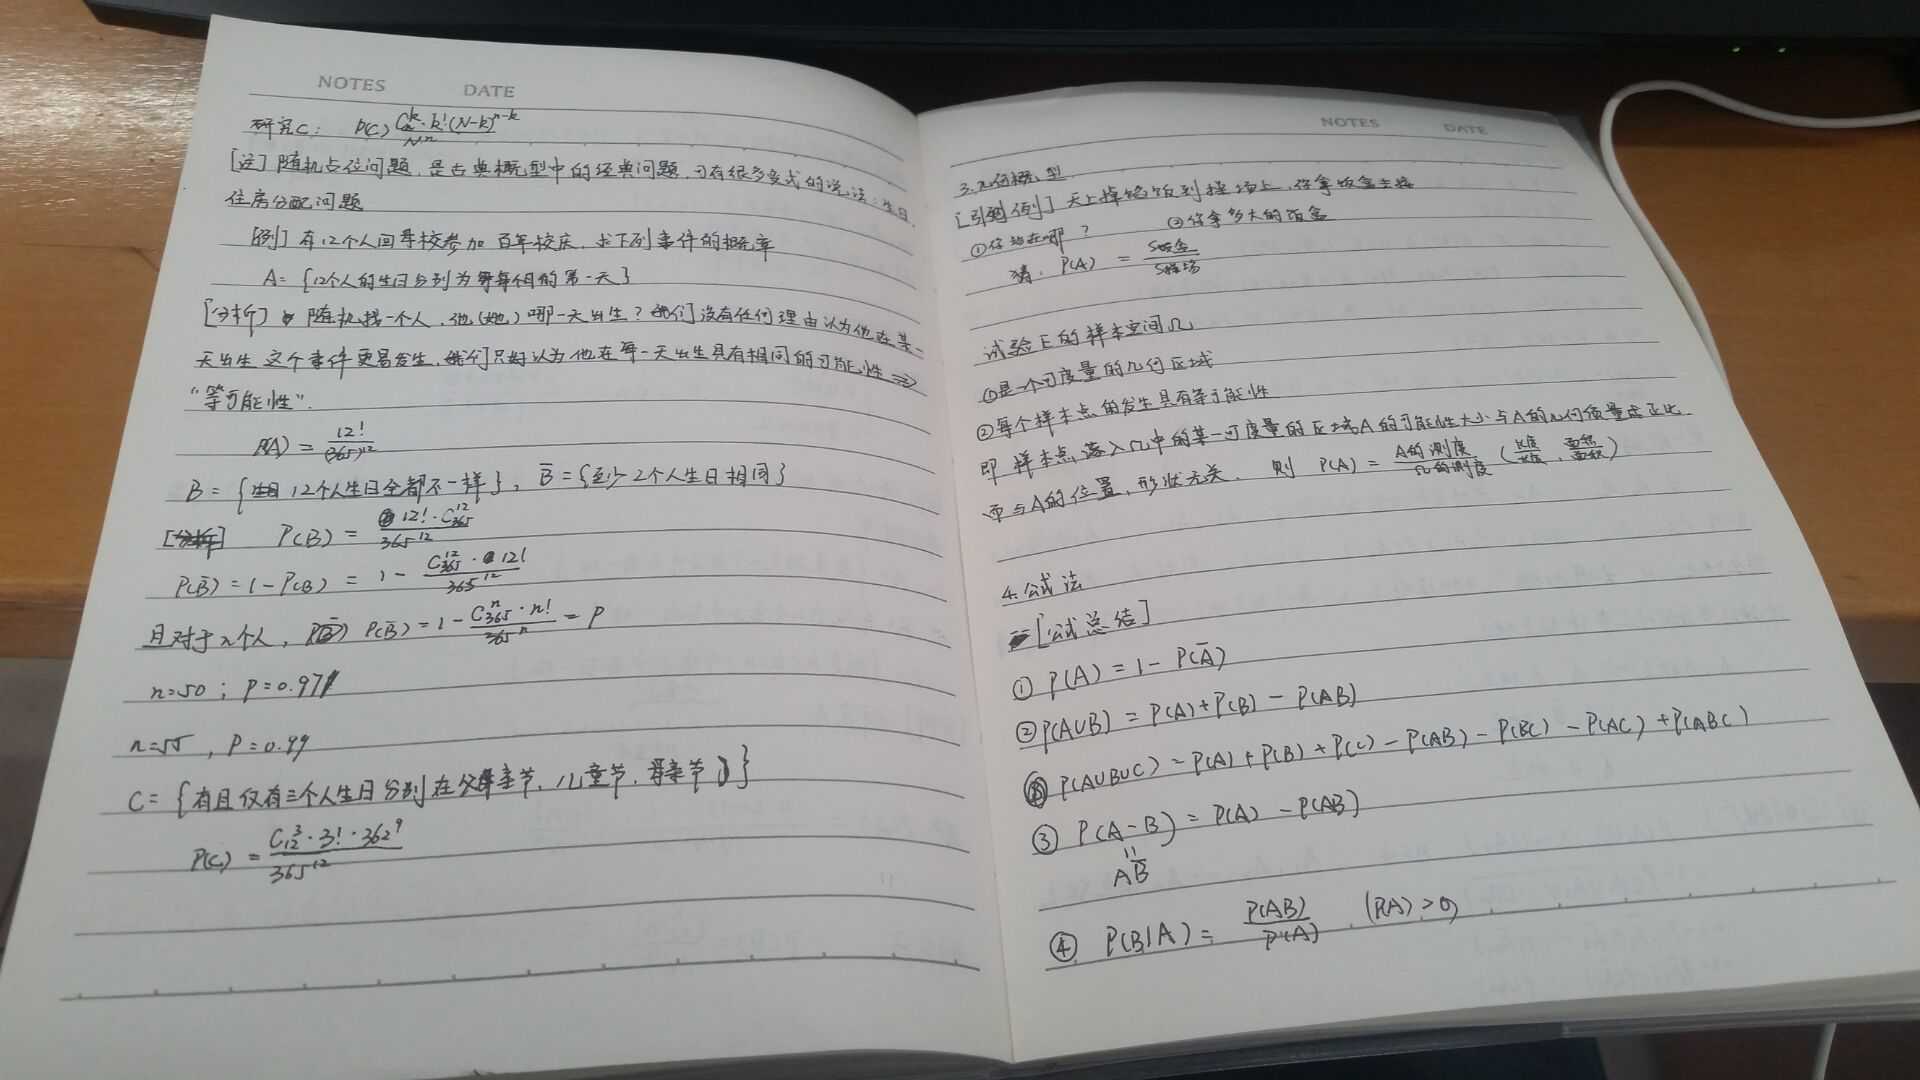 NOTES DATE
研究C: P(C) C_n^k·k!(N-k)^{n-k} / N^n
[注] 随机占位问题,是古典概型中的经典问题,可有很多变式的说法:生日,
住房分配问题
[例] 有12个人回母校参加百年校庆,求下列事件的概率
A={12个人的生日分别为每个月的第一天}
[分析] 随机找一个人,他(她)哪一天出生?我们没有任何理由认为他在某一
天出生这个事件更易发生,我们只好认为他在每一天出生具有相同的可能性⇒
“等可能性”.
P(A) = 12! / (365)^{12}
B={12个人生日全都不一样}, B̄={至少2个人生日相同}
[分析] P(B) = 12!·C_{365}^{12} / 365^{12}
P(B̄)=1-P(B) = 1 - C_{365}^{12}·12! / 365^{12}
且对于n个人, P(B̄)=1- C_{365}^n·n! / 365^n = P
n=50; P=0.97
n=55, P=0.99
C={有且仅有三个人生日分别在父亲节,儿童节,母亲节}
P(C) = C_{12}^3·3!·362^9 / 365^{12}
NOTES DATE
3.几何概型
[引例] 天上掉馅饼到操场上,你拿饭盒去接
①你站在哪? ②你拿多大的饭盒
猜: P(A) = S饭盒 / S操场
试验E的样本空间Ω
①是一个可度量的几何区域
②每个样本点的发生具有等可能性
即 样本点落入Ω中的某一可度量的区域A的可能性大小与A的几何质量成正比
而与A的位置,形状无关. 则 P(A) = A的测度 / Ω的测度 (长度/长度, 面积/面积)
4.公式法
[公式总结]
① P(A)=1-P(Ā)
② P(A∪B)=P(A)+P(B)-P(AB)
P(A∪B∪C)=P(A)+P(B)+P(C)-P(AB)-P(BC)-P(AC)+P(ABC)
③ P(A-B)=P(A)-P(AB)
=
AB̄
④ P(B|A)= P(AB) / P(A) , (P(A)>0)